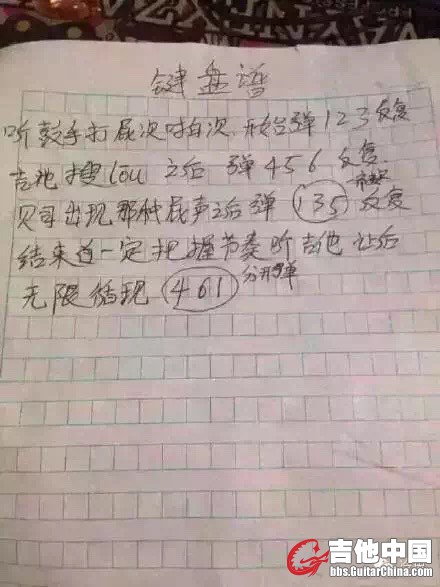 键盘谱
听鼓手打屁次时自次、开始弹123反复
吉他搜lou之后 弹456反复.
贝司出现那种屁声之后弹 135 反复
结束道一定把握节奏听吉他 让后
无限循现 461 分开弹
吉他中国
bbs.GuitarChina.com